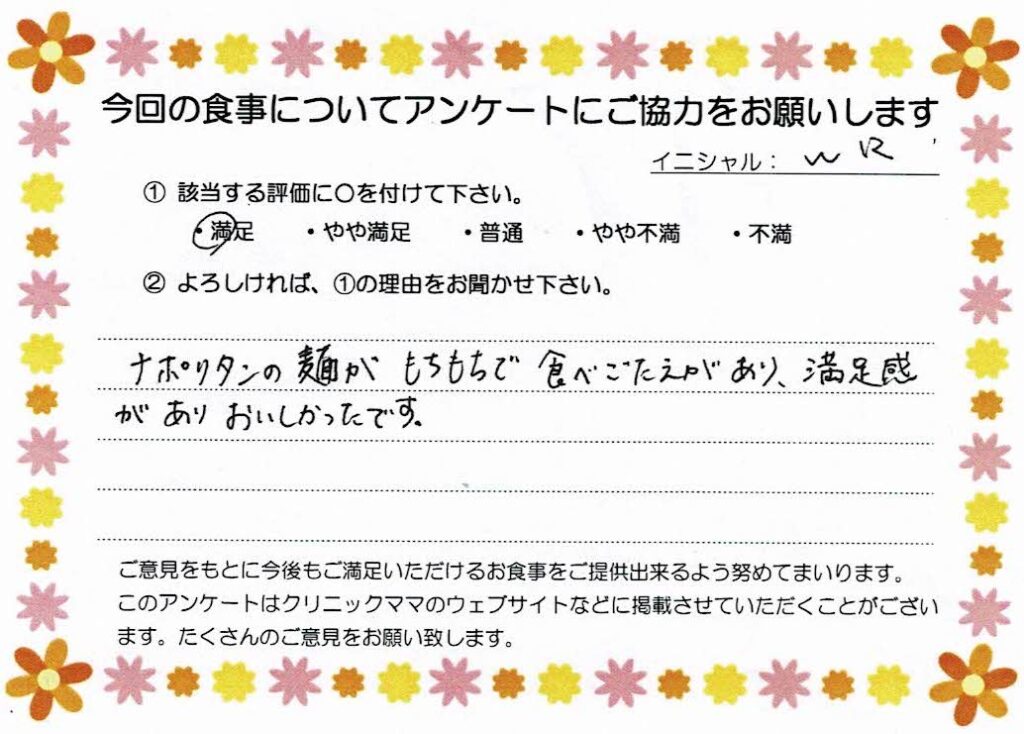 今回の食事についてアンケートにご協力をお願いします
イニシャル： W R
① 該当する評価に〇を付けて下さい。
・満足 ・やや満足 ・普通 ・やや不満 ・不満
② よろしければ、①の理由をお聞かせ下さい。
ナポリタンの麺が もちもちで 食べごたえがあり、満足感
が あり おいしかったです。
ご意見をもとに今後もご満足いただけるお食事をご提供出来るよう努めてまいります。
このアンケートはクリニックママのウェブサイトなどに掲載させていただくことがござい
ます。たくさんのご意見をお願い致します。